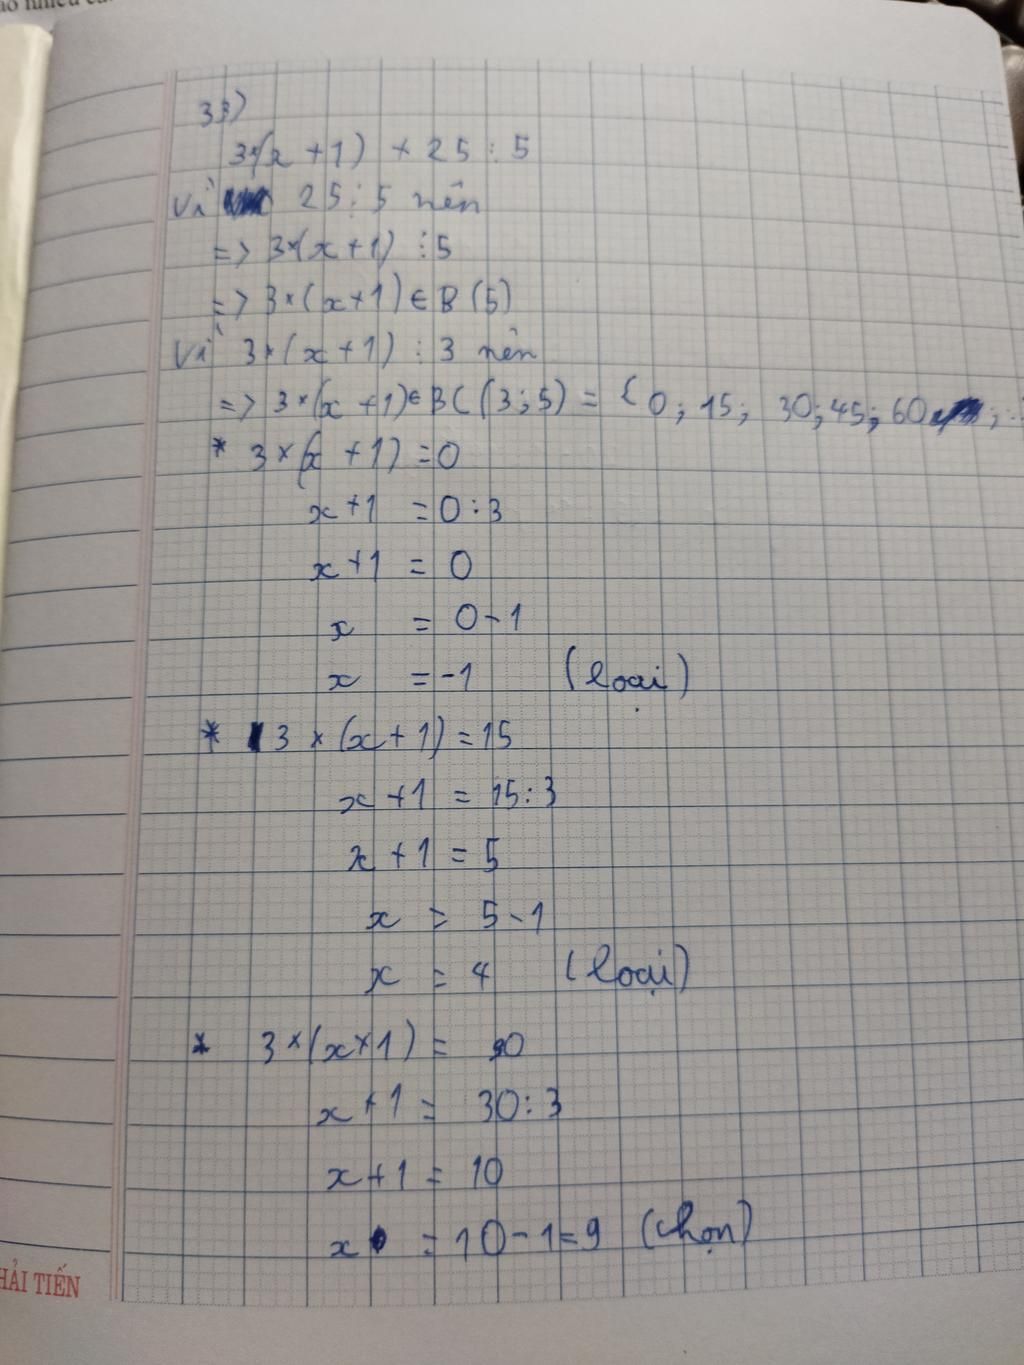 33)
3×(x + 1) + 25 ⋮ 5
Vì 25 ⋮ 5 nên
=> 3×(x + 1) ⋮ 5
=> 3×(x+1) ∈ B (5)
Vì 3×(x+1) ⋮ 3 nên
=> 3×(x+1) ∈ BC (3;5) = { 0; 15; 30; 45; 60
* 3×(x + 1) = 0
x+1 = 0:3
x+1 = 0
x = 0-1
x = -1 (loại)
* 3×(x+1) = 15
x+1 = 15:3
x+1 = 5
x = 5-1
x = 4 (loại)
* 3×(x+1) = 30
x+1 = 30:3
x+1 = 10
x = 10-1=9 (chọn)
HẢI TIẾN